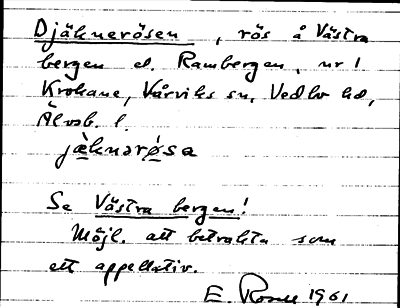 Djäknerösen, rös å Västra
bergen el. Rambergen, nr 1
Krokane, Kårviks sn, Vedbo hd,
Älvsb. l.
jæknərø̀sa
Se Västra bergen!
Möjl. att betrakta som
ett appellativ.
E. 1961